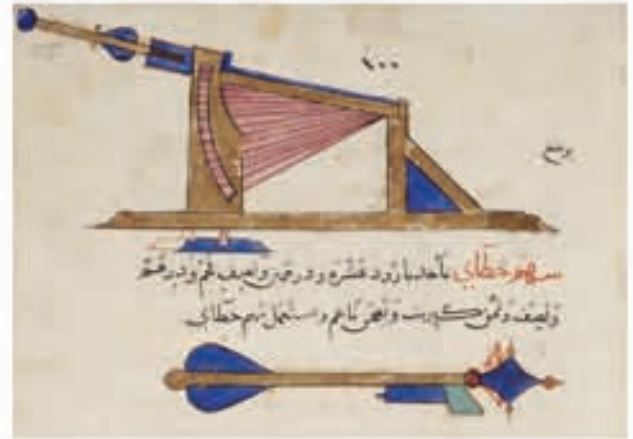 ١٠٠
سهم خطاي تأخذ بارود عشره ودرهمين ونصف فحم ودرهم
ونصف وثمن كبريت وانعمن ناعم وستعمل سهم خطاي